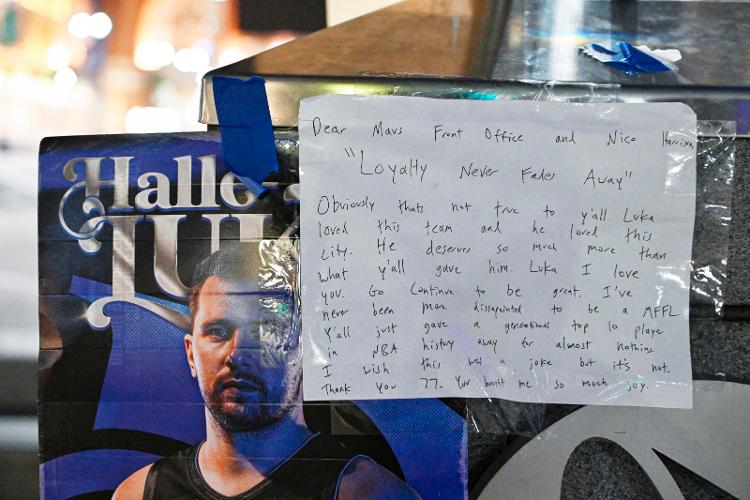 Hallo-
LUK
Dear Mavs Front Office and Nico Harrison
"Loyalty Never Fades Away"
Obviously thats not true to y'all Luka
loved this team and he loved this
city. He deserves so much more than
what y'all gave him. Luka I love
you. Go Continue to be great. I've
never been more dissapointed to be a MFFL.
Y'all just gave a generational top 10 playe
in NBA history away for almost nothing.
I wish this was a joke but it's not.
Thank you 77. You brought me so much joy.